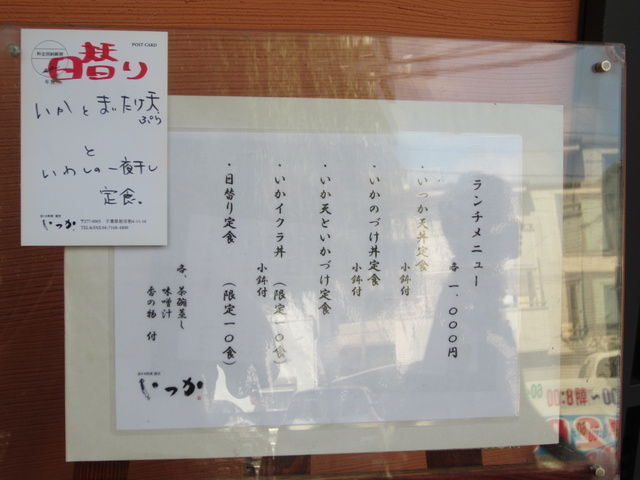 POST CARD
日替り
いかとまいたけ天
ぷら
と
いわしの一夜干し
定食。
いつか
ランチメニュー
各 一、〇〇〇円
・いつか天丼定食
小鉢付
・いかのづけ丼定食
小鉢付
・いか天といかづけ定食
・いかイクラ丼 (限定一〇食)
小鉢付
・日替り定食 (限定一〇食)
各、茶碗蒸し
味噌汁
香の物 付
いつか